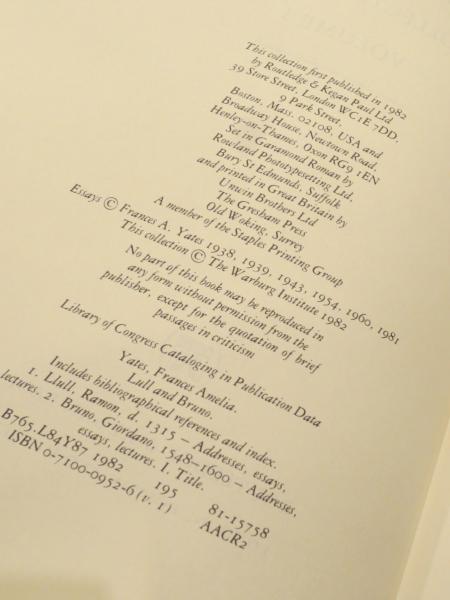 This collection first published in 1982
by Routledge & Kegan Paul Ltd
39 Store Street, London WC1E 7DD,
9 Park Street,
Boston, Mass. 02108, USA and
Broadway House, Newtown Road,
Henley-on-Thames, Oxon RG9 1EN
Set in Garamond Roman by
Rowland Phototypesetting Ltd,
Bury St Edmunds, Suffolk
and printed in Great Britain by
Unwin Brothers Ltd
The Gresham Press
Old Woking, Surrey
A member of the Staples Printing Group
Essays © Frances A. Yates 1938, 1939, 1943, 1954, 1960, 1981
This collection © The Warburg Institute 1982
No part of this book may be reproduced in
any form without permission from the
publisher, except for the quotation of brief
passages in criticism
Library of Congress Cataloging in Publication Data
Yates, Frances Amelia.
Lull and Bruno.
Includes bibliographical references and index.
1. Llull, Ramon, d. 1315 – Addresses, essays,
lectures. 2. Bruno, Giordano, 1548–1600 – Addresses,
essays, lectures. I. Title.
B765.L84Y87 1982 195 81-15758
ISBN 0-7100-0952-6 (v. 1) AACR2